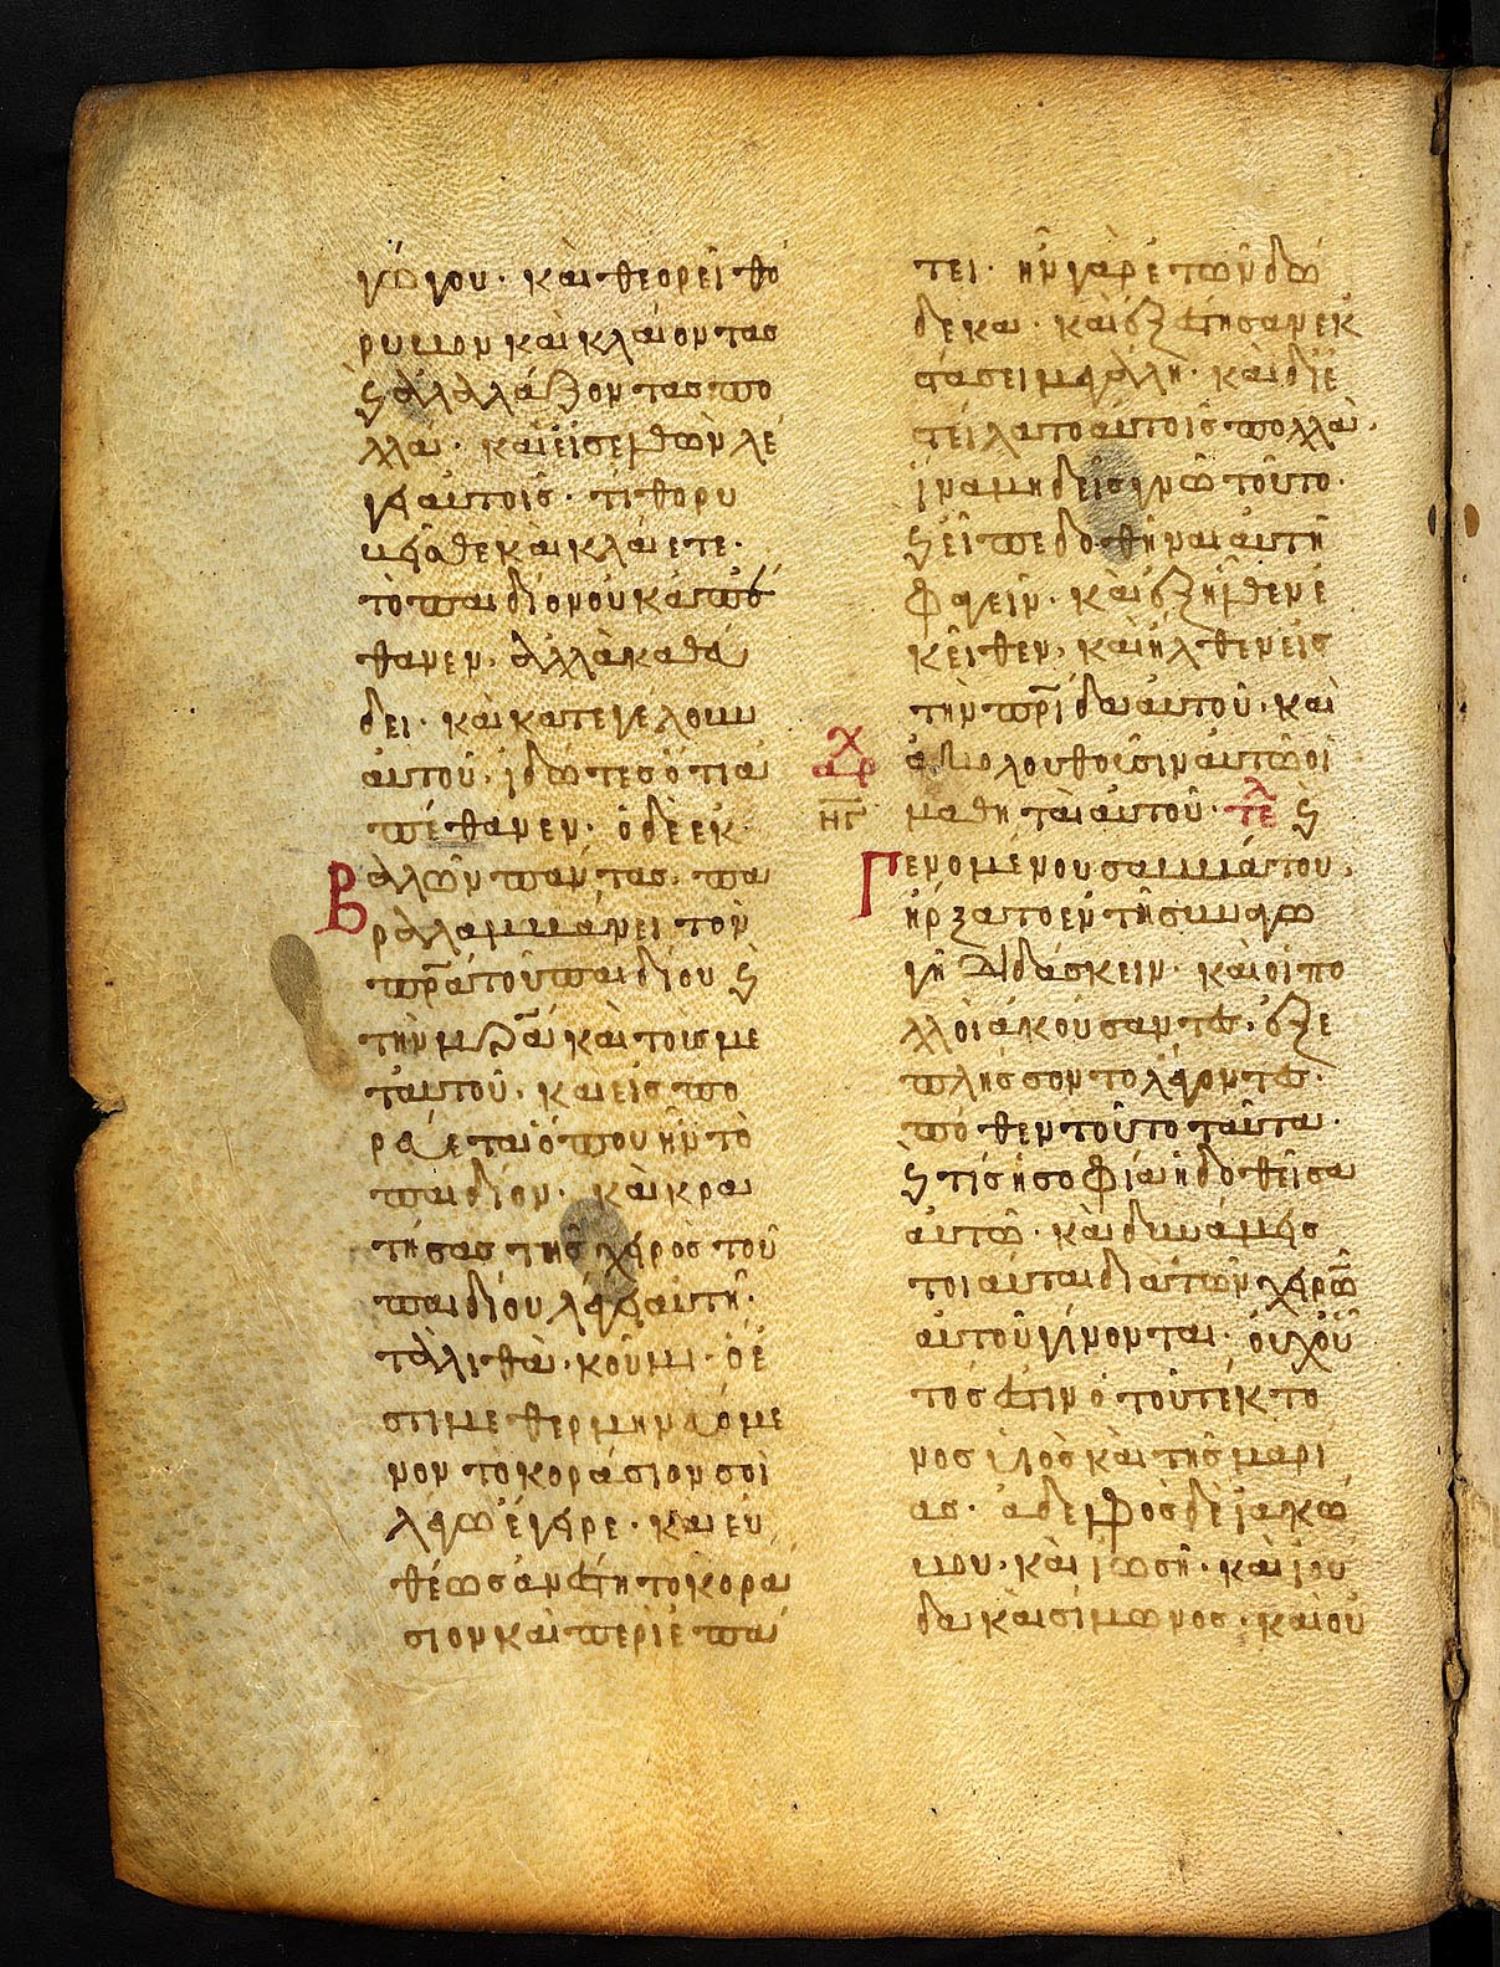 γώγου· καὶ θεορεῖ θό
ρυβον καὶ κλαίοντασ
ϗ ἀλαλάζοντασ πο
λλὰ· καὶ εἰσελθὼν λέ
γει αὐτοῖσ· τί θορυ
βεῖσθε καὶ κλαίετε·
τὸ παιδίον οὐκ ἀπέ
θανεν, ἀλλὰ καθεύ
δει· καὶ κατεγέλουν
αὐτοῦ, ἰδώτεσ ὅτι ἀ
πέθανεν· ὁ δὲ ἐκ
Βαλὼν πάντασ, πα
ραλαμβάνει τὸν
πρ̅α τοῦ παιδίου ϗ
τὴν μρ̅α καὶ τοὺσ με
τ αὐτοῦ, καὶ εἰσπο
ρεύεται ὅπου ἦν τὸ
παιδίον· καὶ κρα
τήσασ τῆσ χειρὸσ τοῦ
παιδίου λέγει αὐτῆ·
ταλιθὰ, κοῦμι· ὅ ἐ
στι μεθερμηνευόμε
νον τὸ κοράσιον σοὶ
λέγω ἔγειρε· καὶ εὐ
θέωσ ἀνέστη τὸ κορά
σιον καὶ περιεπά
τει· ἦν γὰρ ἐτῶν δώ
δεκα· καὶ ἐξέστησαν ἐκ
στάσει μεγάλη· καὶ διε
στείλατο αὐτοῖσ πολλὰ,
ἵνα μηδεὶσ γνῶ τοῦτο·
ϗ εἶπε δοθῆναι αὐτῆ
φαγεῖν· καὶ ἐξῆλθεν ἐ
κεῖθεν, καὶ ἦλθεν εἰσ
τὴν πρι̅δα αὐτοῦ· καὶ
αρχ ἀκολουθοῦσιν αὐτῶ οἱ
νγ μαθηταὶ αὐτοῦ· τελ ϗ
Γενομένου σαββάτου,
ἤρξατο ἐν τῆ συναγω
γῆ διδάσκειν· καὶ οἱ πο
λλοὶ ἀκούσαντεσ, ἐξε
πλήσσοντο λέγοντεσ·
πόθεν τοῦτο ταῦτα·
ϗ τίσ ἡ σοφία ἡ δοθεῖσα
αὐτῶ· καὶ δυνάμεισ
τοιαῦται διὰ τῶν χειρῶν
αὐτοῦ γίνονται· οὐχ οὗ
τόσ ἐστιν ὁ τοῦ τέκτο
νοσ υἱὸσ καὶ τῆσ μαρί
ασ· ἀδελφὸσ δὲ ἰακώ
βου· καὶ ἰωσῆ· καὶ ἰού
δα καὶ σίμωνοσ· καὶ οὐ